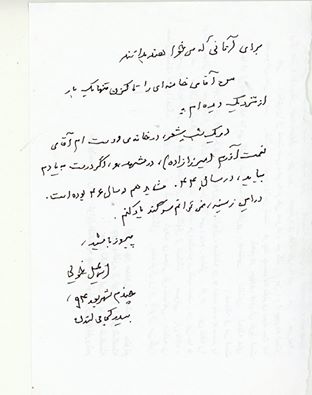 برای آنانی که می‌خواهند بدانند
من آقای خامنه‌ای را تا کنون تنها یک بار
از نزدیک دیده‌ام:
در یک شب شعر، در خانه‌ی دوست‌ام آقای
نعمت آزرم (میرزازاده)، در مشهد، و، اگر درست به یادم
بیاید، در سال ۴۴. شاید هم در سال ۴۶ بوده است.
در این زمینه، می‌توانم سوگند یاد کنم.
پیروز باشید،
اسماعیل خویی
پنجم شهریور ۹۴،
بیدرکجای لندن